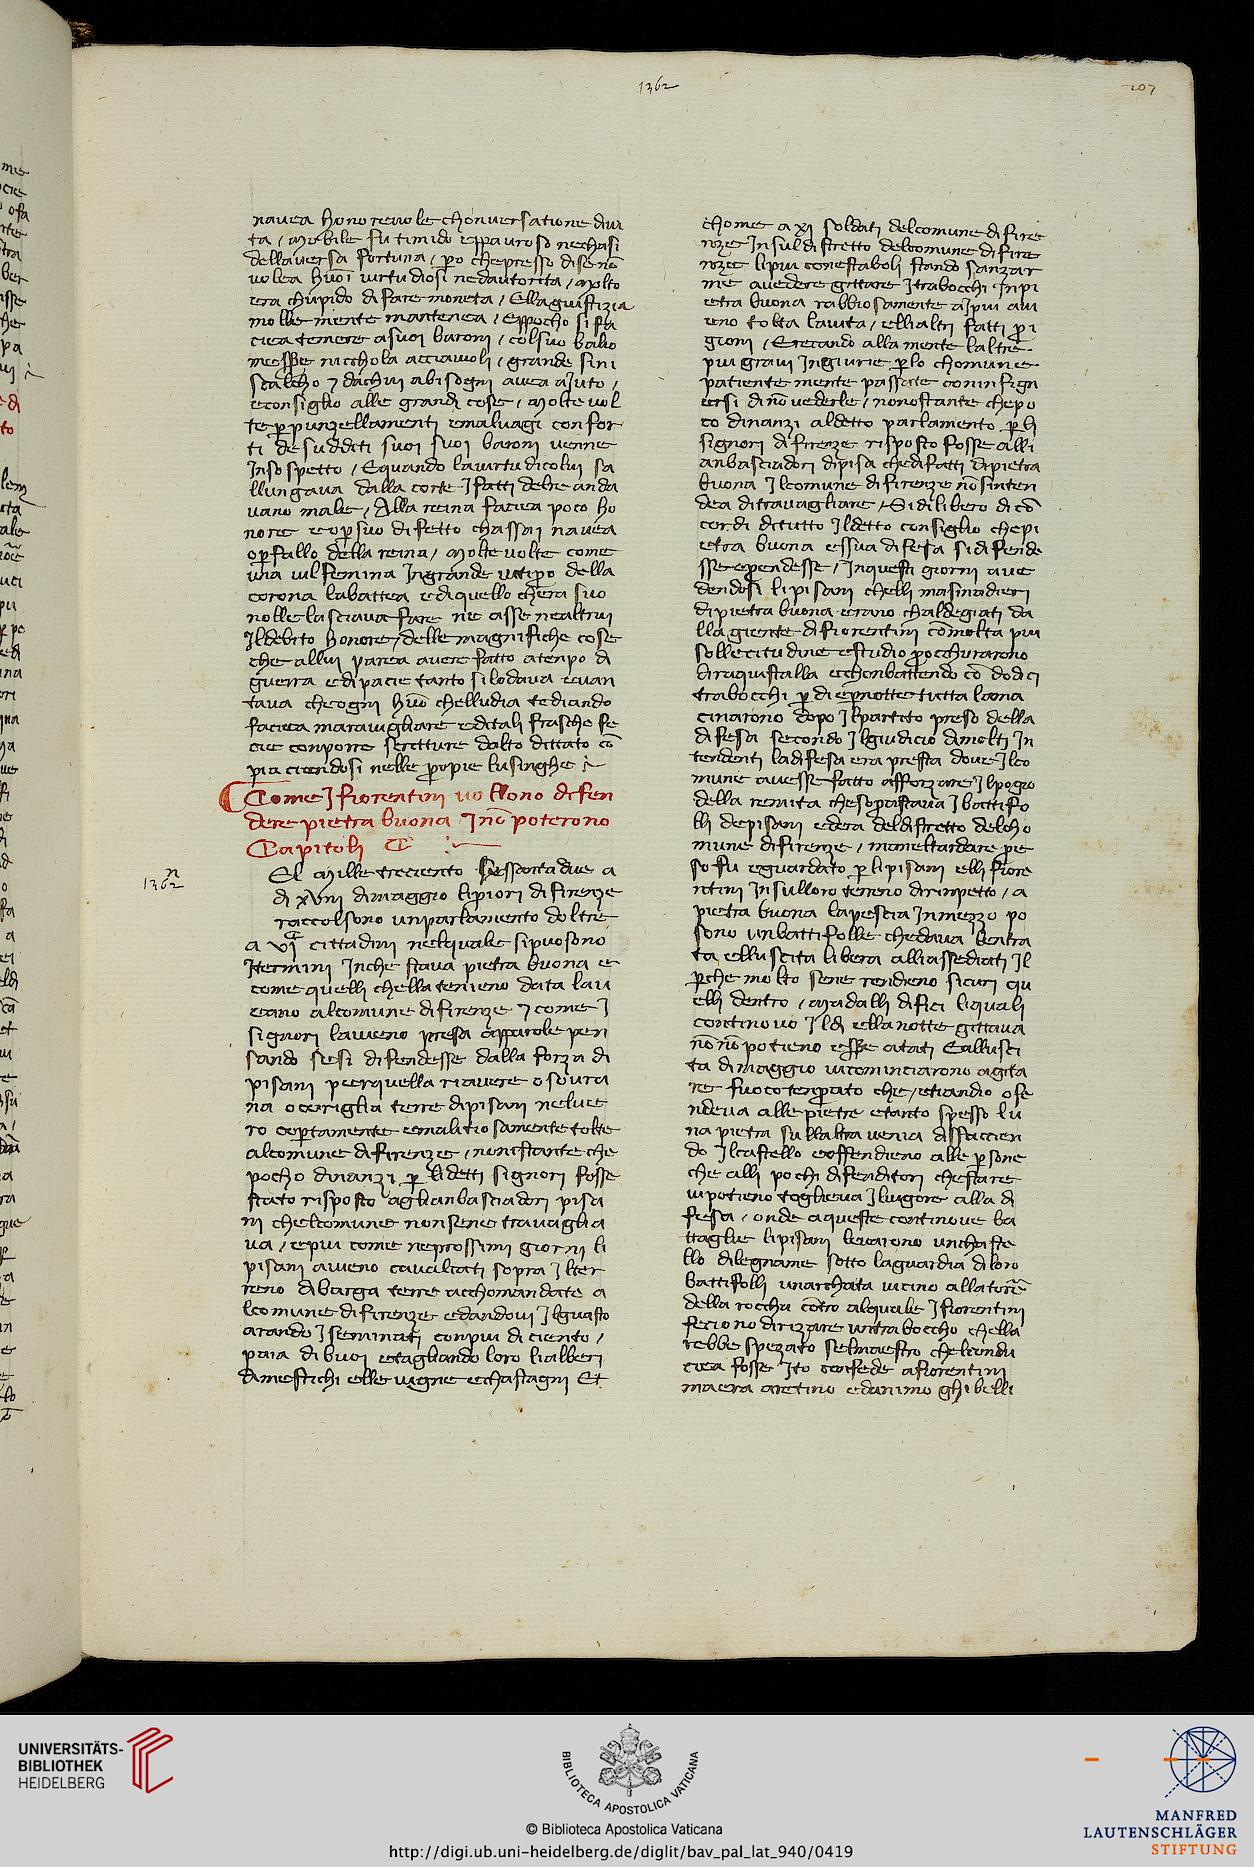 1362
207
navea honorevole chonversatione di vi
ta / mobile fu timido e ppauroso ne chasi
dellaversa fortuna / po che presso di se nō
volea huoi virtudiosi ne dautorita / molto
era chupido di fare moneta / Ella giustizia
molle mente mantenea / Eppocho si fa
ciea temere a suoi baroni / col suo balio
messre nicchola acciavoli / grande sini
scalcho 7 da chui abisogni avea aiuto /
e consiglio alle grandi cose / molte vol
te p punzellamenti e malvagi confor
ti de sudditi suoi suoi baroni venne
In sospetto / E quando la virtu di colui sa
llungava dalla corte I fatti del re anda
vano male / Alla reina facieva poco ho
nore e op suo difetto ch assai navea
o p fallo della reina / molte volte come
una vil femina In grande vitipo della
corona la battea e di quello chera suo
nolle lasciava fare ne asse ne altrui
Il debito honore / delle magnifiche cose
che allui parea avere fatto a tenpo di
guerra e di pacie tanto si lodava e van
tava che ogni huō che lludia tediando
faciea maravigliare e di tali frasche fe
cie conporre scritture dalto dittato cō
piaciendosi nelle propie lusinghe
Come I fiorentini vollono difen
dere pietra buona I nō poterono
Capitoli C
1362
El mille treciento sessanta due a
di xviii di maggio li piori di firenze
raccolsono un parlamento doltre
a vi cittadini nel quale si puosono
I termini In che stava pietra buona e
come quelli che lla tenieno data lavi
eano al comune di firenze 7 come I
signori lavieno presa a pparole pen
sando se si difendesse dalla forza di
pisani per quella riavere o sovra
na o coriglia terre di pisani nelve
ro copertamente e malitiosamente tolte
al comune di firenze / nonistante che
pocho dinanzi p li detti signori fosse
stato risposto agli anbasciadori pisa
ni chel comune non sene travaglia
va / e piu come ne prossimi giorni li
pisani avieno cavalcati sopra Il ter
reno di barga terre acchomandate a
lcomune di firenze e dandovi Il guasto
arando I seminati con piu di ciento /
paia di buoi e tagliando loro li alberi
dimestichi e lle vigne e chastagni Et
chome a xi soldati del comune di fire
nze In sul distretto del comune di fire
nze li piu conestaboli stando sanzar
me a vedere gittare I trabocchi In pi
etra buona rabbiosamente a i piu avi
eno tolta la vita / e lli altri fatti pri
gioni / E recando alla mente l altre
piu gravi Ingiurie p lo chomune
patiente mente passate con infign
ersi di nō vederle / nonostante che po
co dinanzi al detto parlamento p li
signori di firenze risposto fosse alli
anbasciadori di pisa che di fatti di pietra
buona Il comune di firenze nō sinten
dea di travagliare / Si dilibero di cō
cordi di tutto Il detto consiglio che pi
etra buona e ssua difesa si difende
sse e prendesse / In questi giorni ave
dendosi li pisani che lli masinadieri
di pietra buona erano chaldegiati da
lla giente di fiorentini cō molta piu
sollecitudine e studio procchurarono
di raquistalla e cchonbattendo cō dodici
trabocchi p di e p notte tutta la ma
cinarono dopo Il partito preso della
difesa secondo Il giudicio di molti In
tendenti la difesa era presta dove Il co
mune avesse fatto afforzare Il pogio
della remita che soprastava I battifo
lli de pisani ed era del distretto del cho
mune di firenze / ma nel tardare pe
so fu e guardato p li pisani e lli fiore
ntini In sul loro terreno dirinpetto / a
pietra buona la pescia In mezzo po
sono un battifolle che dava lentra
ta e lluscita libera alli assediati Il
pche molto sene rendeno sicuri qu
elli dentro / ma dalli difici li quali
continovo Il di e lla notte gittava
no nō potieno essre atati E alluscì
ta di maggio vi cominciarono a gita
re fuoco tenprato che / etiandio ofe
ndeva alle pietre e tanto spesso lu
na pietra sullaltra venia disfaccien
do Il castello e offendieno alle psone
che alli pochi difenditori che stare
vi potieno toglieva Il vigore alla di
fesa / onde a queste continove ba
ttaglie li pisani levarono un chaste
llo di legname sotto la guardia di loro
battifolli un archata vicino alla torre
della roccha cōtro al quale I fiorentini
feciono dirizare un trabocho che lla
rebbe spezato sel maestro chel condu
ciea fosse Ito con fede a fiorentini
ma era aretino e danimo ghibelli
UNIVERSITÄTS-
BIBLIOTHEK
HEIDELBERG
BIBLIOTECA APOSTOLICA VATICANA
© Biblioteca Apostolica Vaticana
http://digi.ub.uni-heidelberg.de/diglit/bav_pal_lat_940/0419
MANFRED
LAUTENSCHLÄGER
STIFTUNG